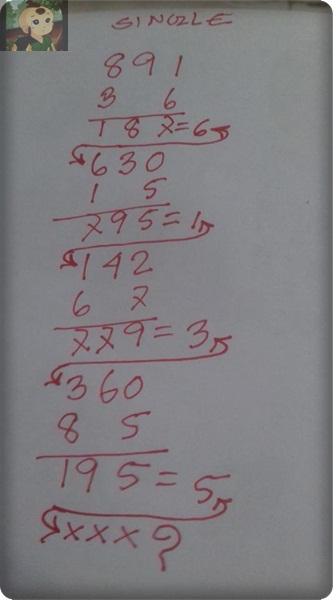 SINGLE
891
3 6
187=6
630
1 5
795=1
142
6 7
779=3
360
8 5
195=5
xxx?